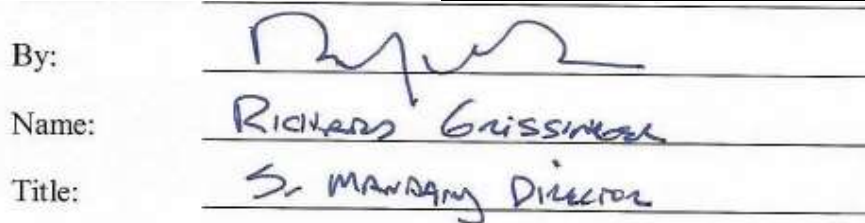 By:
Name: RICHARD GRISSINGER
Title: S. MANAGING DIRECTOR